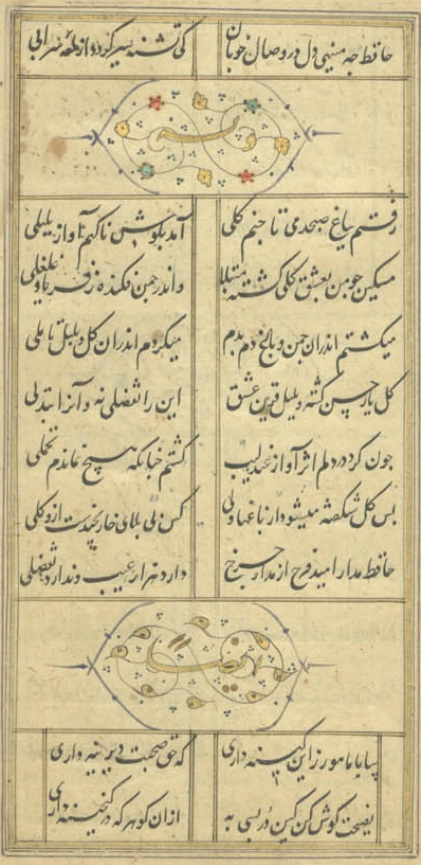 حافظ چه مینهی دل در وصال خوبان
کی تشنه سیر گردد از لمعه سرابی
وله
رفتم بباغ صبحدمی تا چنم گلی
آمد بگوش ناگهم آواز بلبلی
مسکین چو من بعشق گلی گشته مبتلا
واندر چمن فکنده ز فریاد غلغلی
میگشتم اندران چمن و باغ دم بدم
میکردم اندران گل و بلبل تاملی
گل یار حسن گشته و بلبل قرین عشق
این را تفضلی نه و آنرا تبدلی
چون کرد در دلم اثر آواز عندلیب
گشتم چنانکه هیچ نماندم تحملی
بس گل شکفته میشود از باغها ولی
کس بی بلای خار نچیدست ازو گلی
حافظ مدار امید فرح از مدار چرخ
دارد هزار عیب و ندارد تفضلی
ایضا
بیا با ما مورز این کینه داری
که حق صحبت دیرینه داری
نصیحت گوش کن کین در بسی به
ازان گوهر که در گنجینه داری